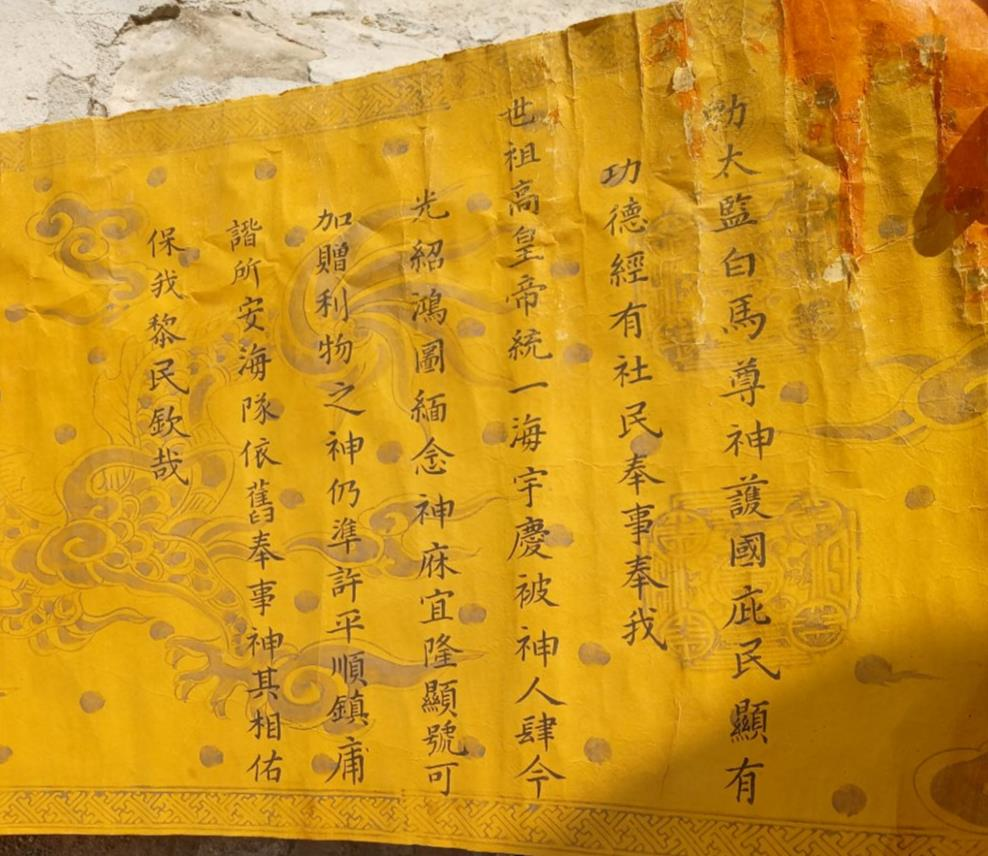 勅太監白馬尊神護國庇民顯有
功德經有社民奉事奉我
世祖高皇帝統一海宇慶被神人肆今
光紹鴻圖緬念神庥宜隆顯號可
加贈利物之神仍準許平順鎮庸
諧所安海隊依舊奉事神其相佑
保我黎民欽哉